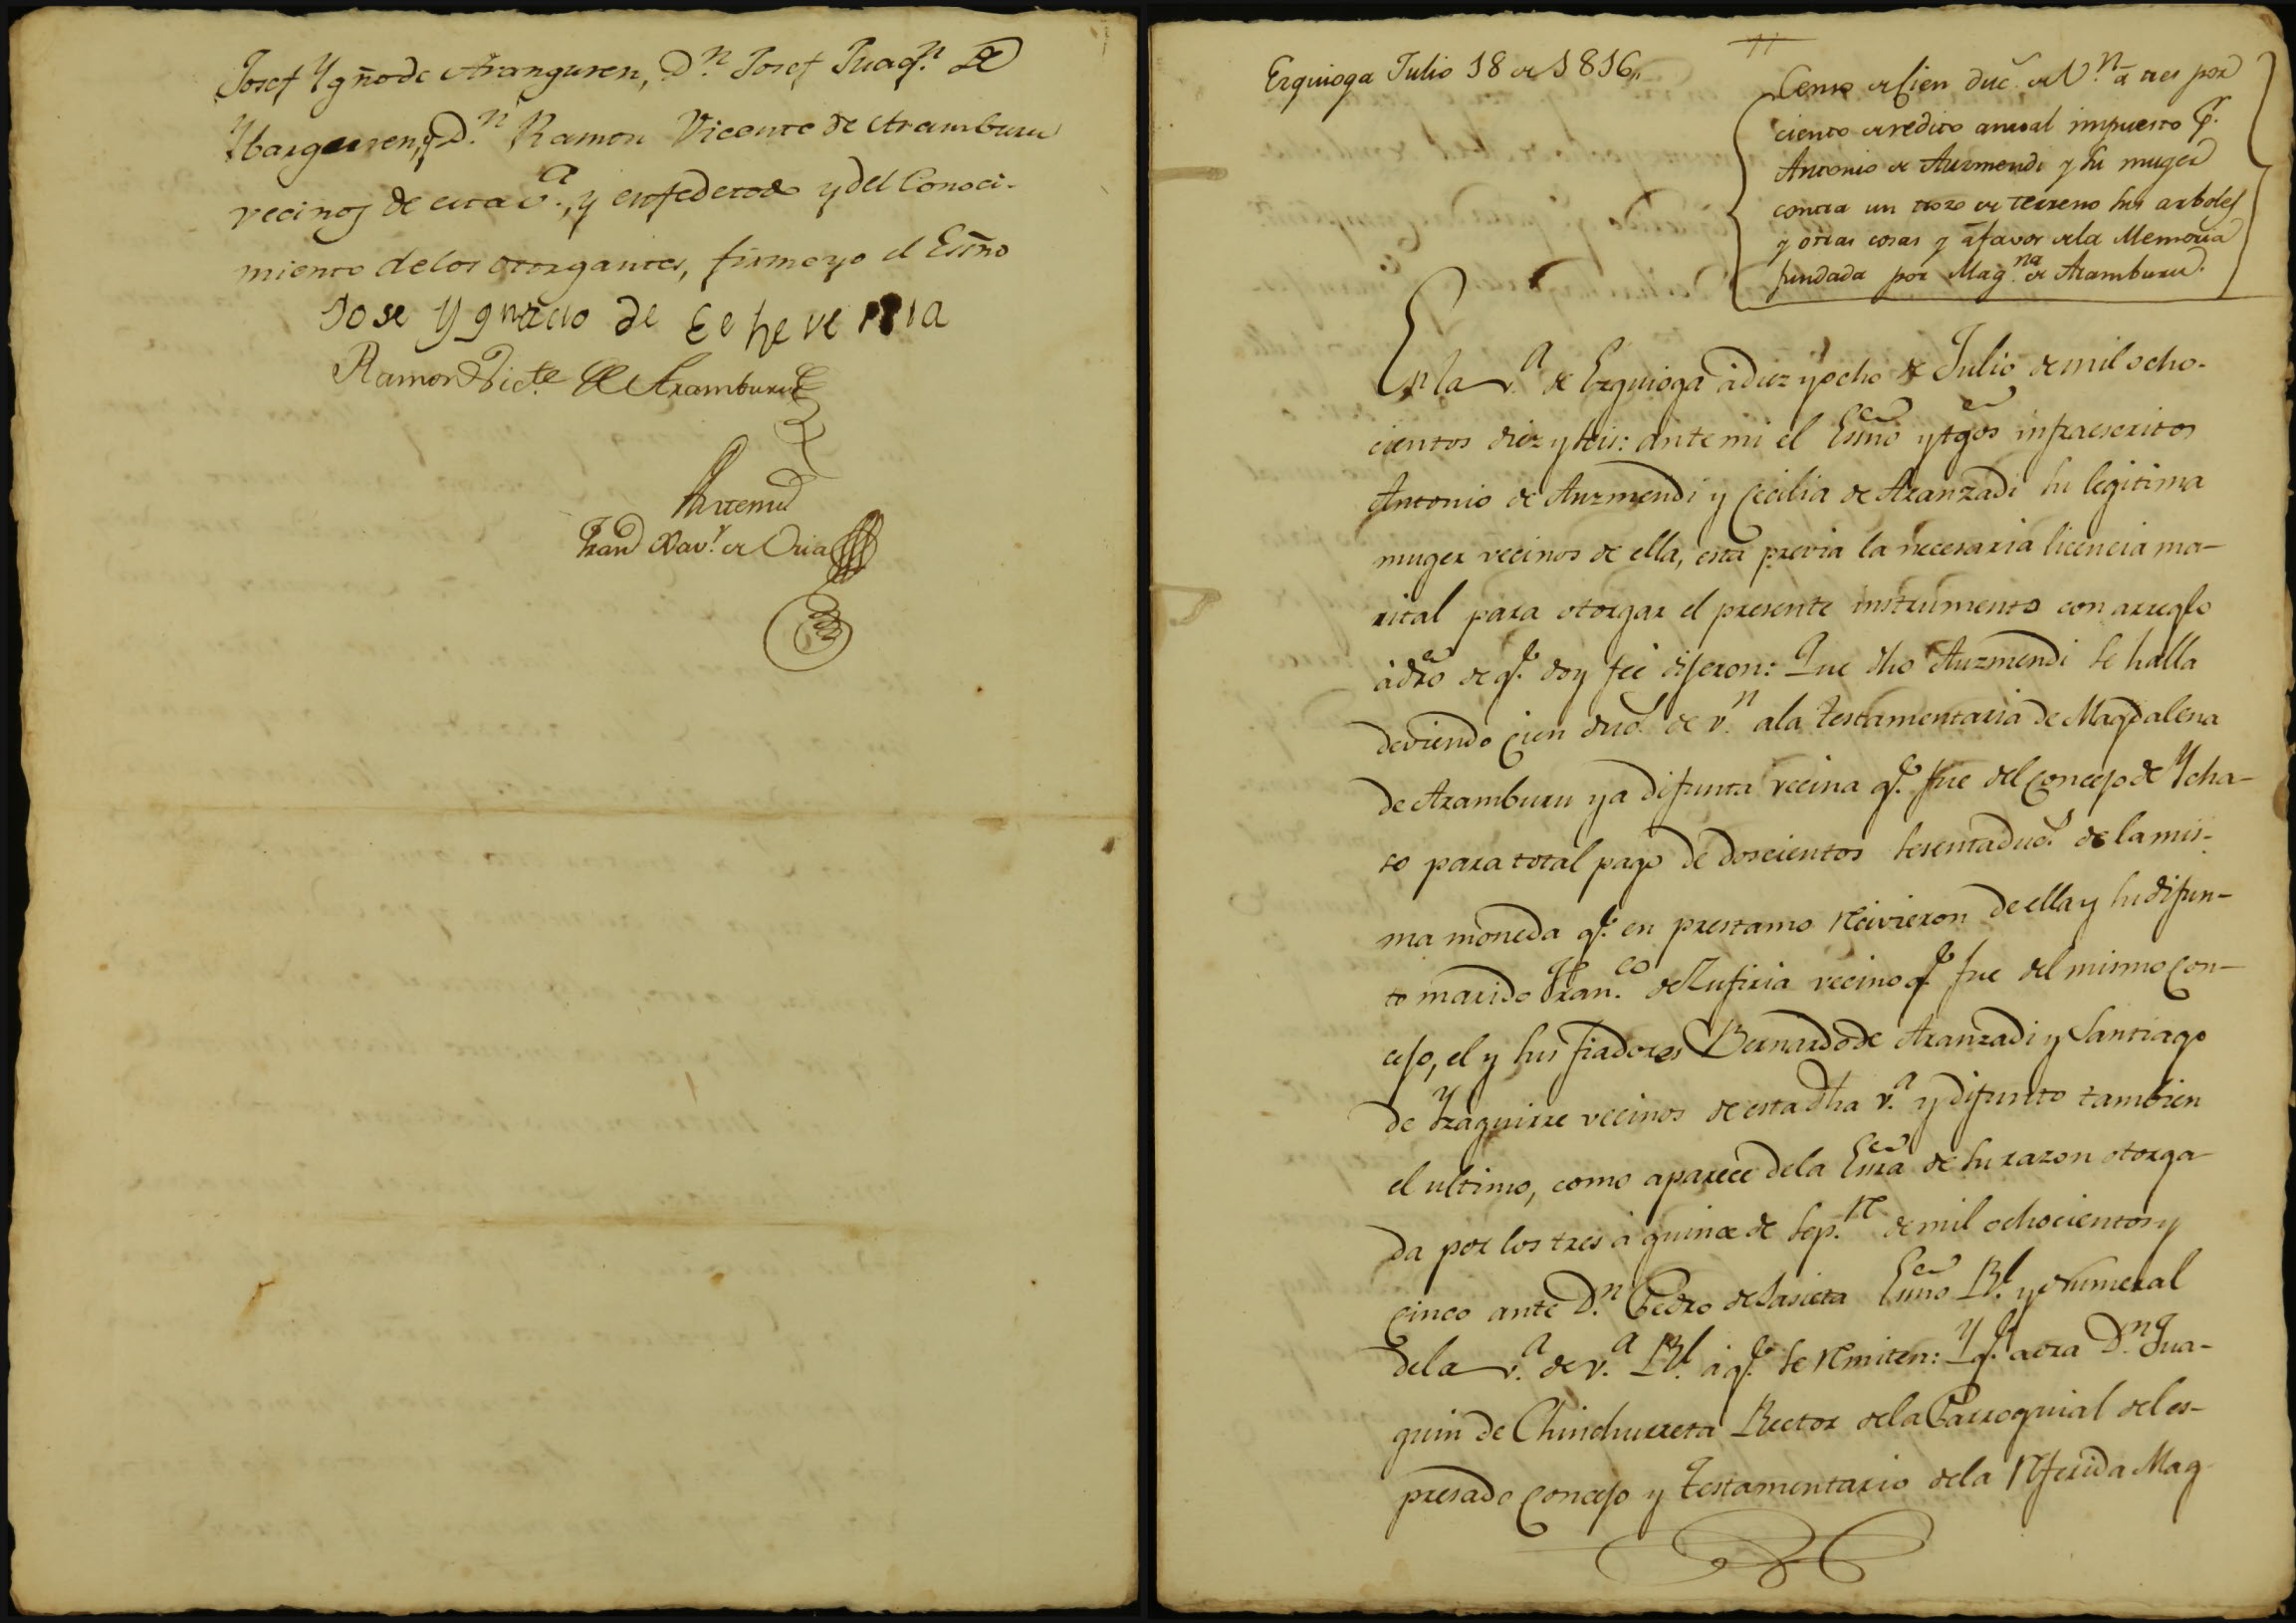 Josef Ygño de Aranguren, D.n Josef Juaq.n de
Ybarguren, y D.n Ramon Vicente de Aramburu
vecinos de esta v.a, y en fe de todo y del Conoci-
miento de los otorgantes, firme yo el Esño
Jose Ygnacio de Echeverria
Ramon Vic.te de Aramburu
Ante mi
Fran Xav.r de Oria
Ezquioga Julio 18 de 1816
11
Censo de Cien duc.s de V.n a tres por
ciento de redito anual impuesto p.r
Antonio de Auzmendi y su muger
contra un trozo de terreno sus arboles
y otras cosas y á favor de la Memoria
fundada por Mag.na de Aramburu.
En la v.a de Ezquioga á diez y ocho de Julio de mil ocho-
cientos diez y seis: ante mi el Esño y tgos infraescritos
Antonio de Auzmendi y Cecilia de Aranzadi su legitima
muger vecinos de ella, esta previa la necesaria licencia ma-
rital para otorgar el presente instrumento con arreglo
á dro de q.e doy feé dijeron: Que dho Auzmendi se halla
deviendo cien duc.s de v.n a la testamentaria de Magdalena
de Aramburu ya difunta vecina q.e fue del Concejo de Ycha-
so para total pago de doscientos sesenta duc.s de la mis-
ma moneda q.e en prestamo recivieron de ella y su difun-
to marido Fran.co de Zufiria vecino q.e fue del mismo Con-
cejo, el y sus fiadores Bernardo de Aranzadi y Santiago
de Yzaguirre vecinos de esta dha v.a y difunto tambien
el ultimo, como aparece de la Esra de su razon otorga-
da por los tres á quince de Sep.re de mil ochocientos y
cinco ante D.n Pedro de Sasieta Esño R.l y Numeral
de la v.a de V.a R.l á q.e se remiten: Y q.e aora D.n Jua-
quin de Chinchurreta Rector de la Parroquial del es-
presado Concejo y testamentario de la referida Mag-